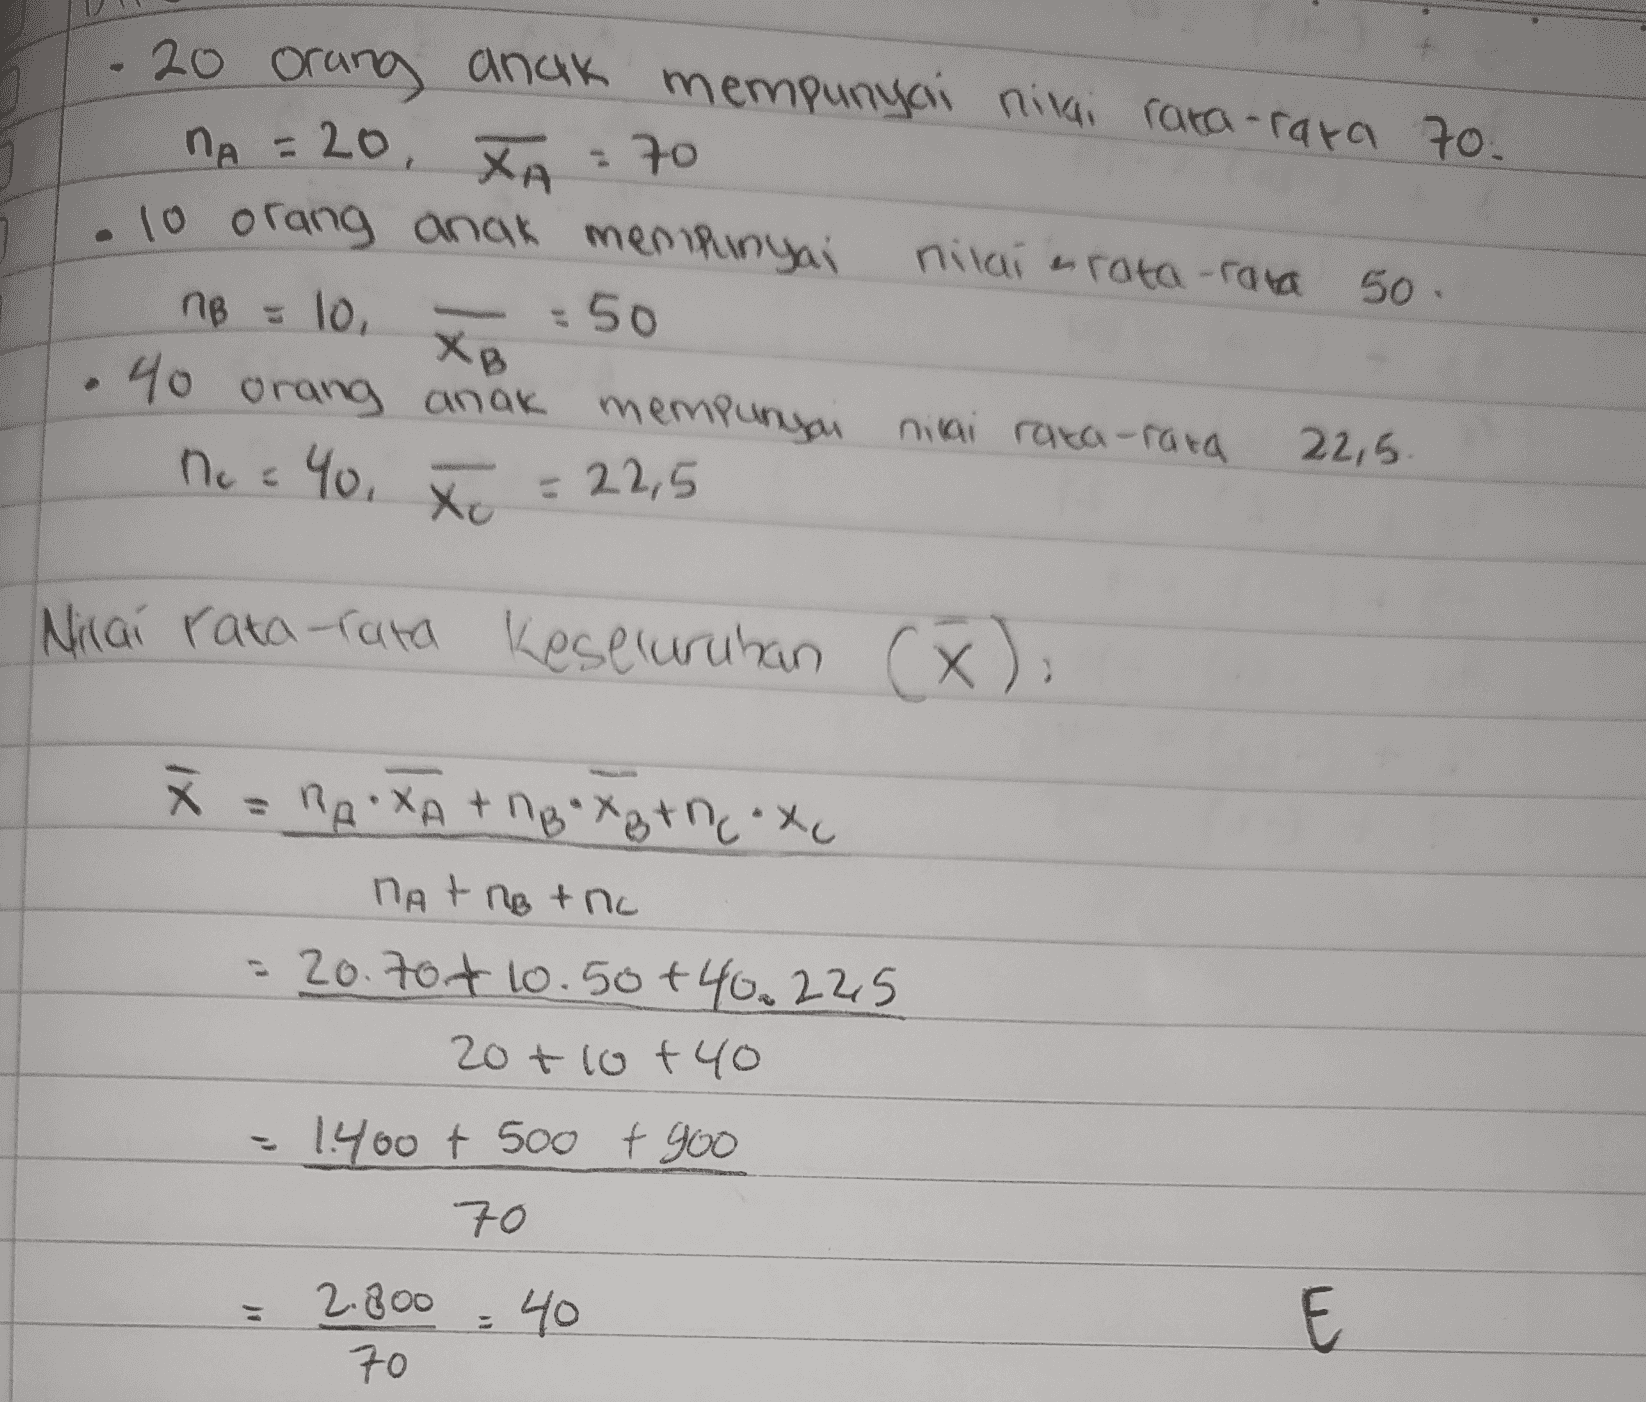 • 20 orang anak mempunyai nilai rata-rata 70.
nA = 20, x̄A = 70
• 10 orang anak mempunyai nilai rata-rata 50.
nB = 10, x̄B = 50
• 40 orang anak mempunyai nilai rata-rata 22,5.
nC = 40, x̄C = 22,5
Nilai rata-rata keseluruhan (x̄):
x̄ = nA · x̄A + nB · x̄B + nC · xC
nA + nB + nC
= 20.70 + 10.50 + 40.22,5
20 + 10 + 40
= 1.400 + 500 + 900
70
= 2.800 = 40 E
70